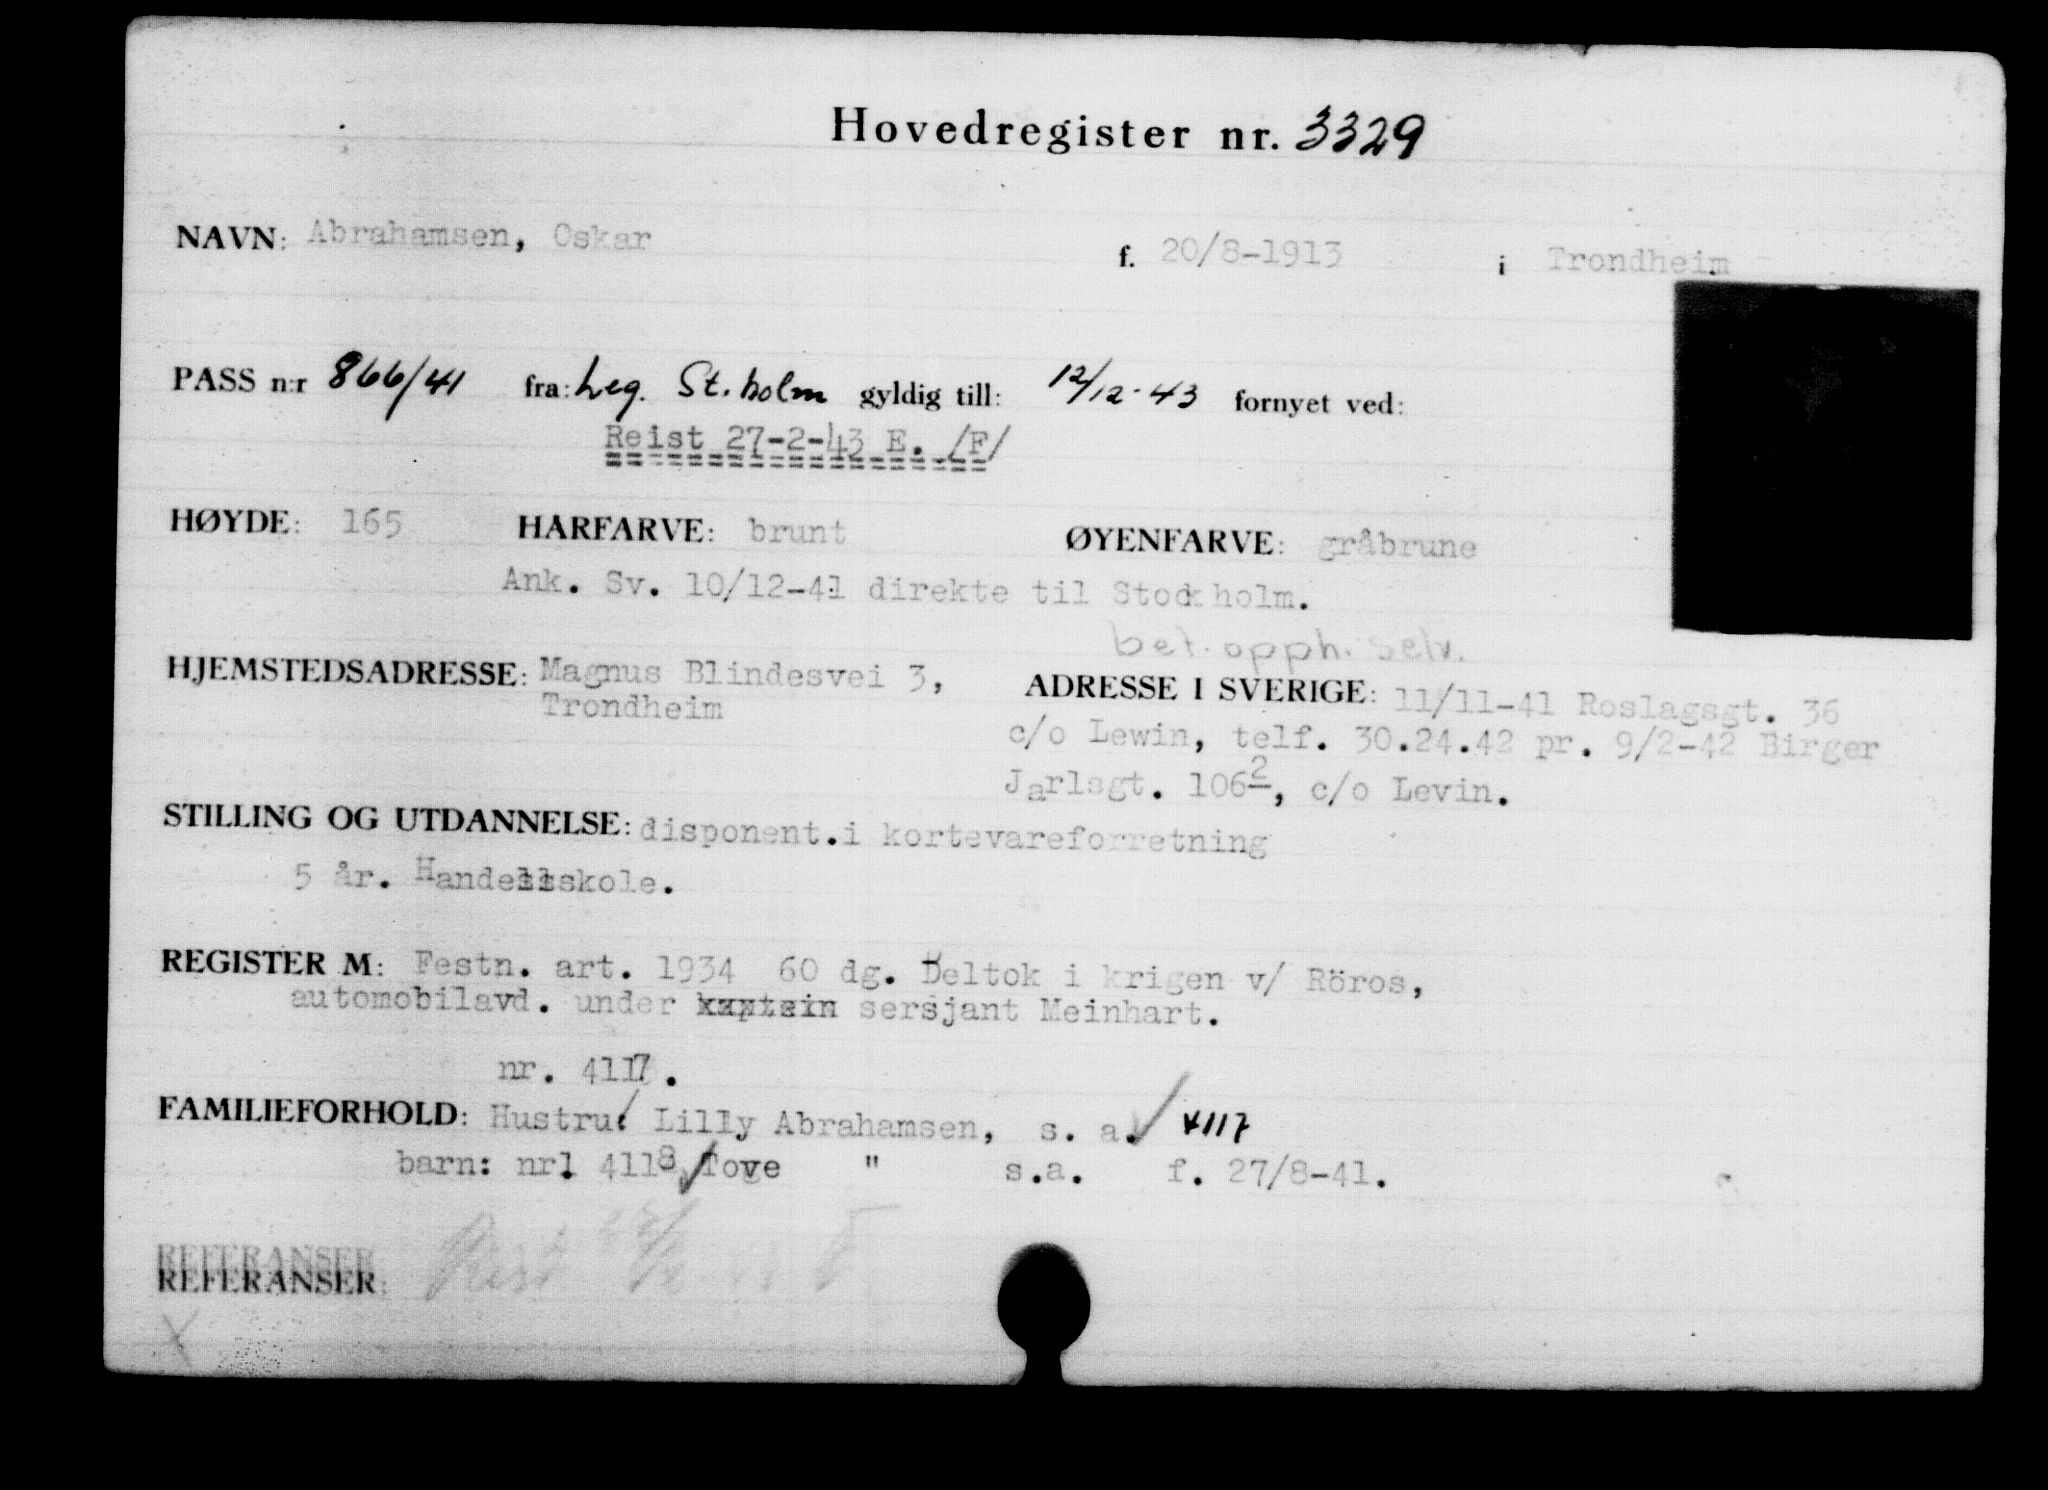 Hovedregister nr. 3329
NAVN: Abrahamsen, Oskar f. 20/8-1913 i Trondheim
PASS n:r 866/41 fra: Leg. St.holm gyldig till: 12/12-43 fornyet ved:
Reist 27-2-43 E. /F/
HØYDE: 165 HÅRFARVE: brunt ØYENFARVE: gråbrune
Ank. Sv. 10/12-41 direkte til Stockholm.
bet. opph. selv.
HJEMSTEDSADRESSE: Magnus Blindesvei 3, ADRESSE I SVERIGE: 11/11-41 Roslagsgt. 36
Trondheim
c/o Lewin, telf. 30.24.42 pr. 9/2-42 Birger
Jarlsgt. 106 2, c/o Levin.
STILLING OG UTDANNELSE: disponent.i kortevareforretning
5 år. Handelsskole.
REGISTER M: Festn. art. 1934 60 dg. Deltok i krigen v/ Röros,
automobilavd. under kaptein sersjant Meinhart.
nr. 4117.
FAMILIEFORHOLD: Hustru: Lilly Abrahamsen, s. a. 4117
barn: nr. 4118 Tove " s.a. f. 27/8-41.
REFERANSER
REFERANSER:
Reist